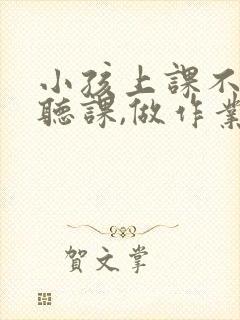 小孩上課不
聽課,做作業
賀文掌